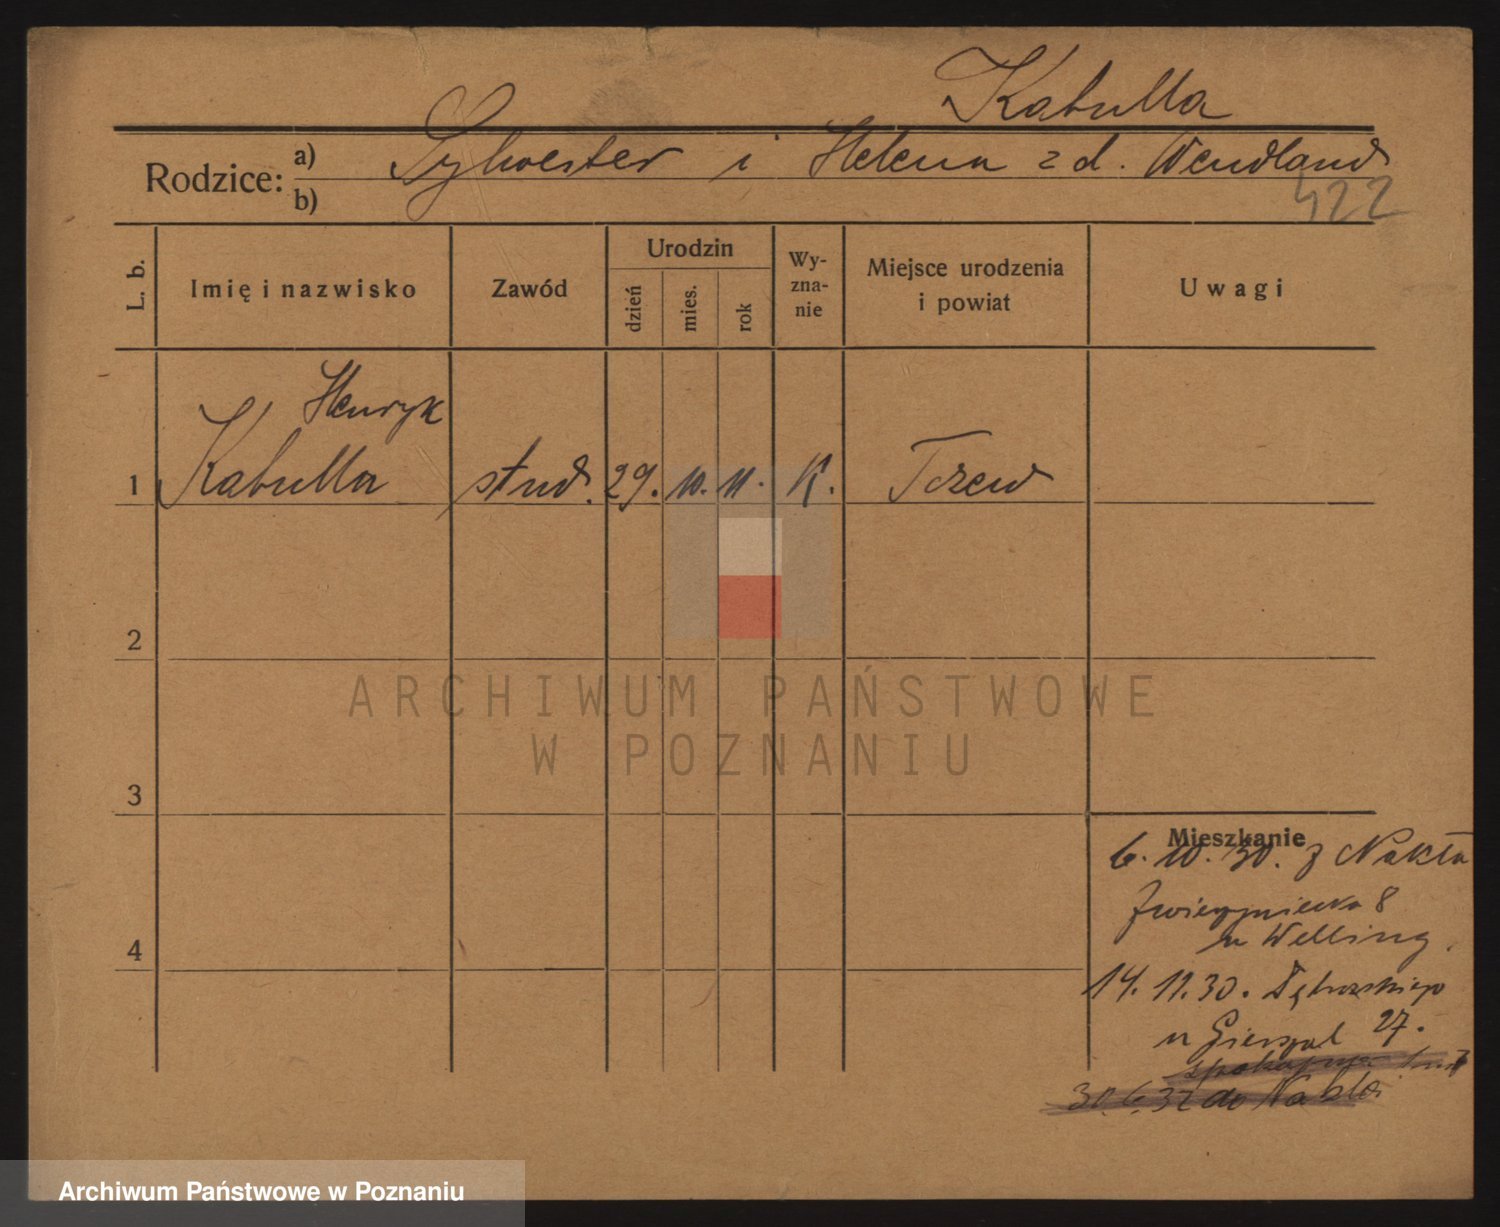 Kabulla
Rodzice: a) Sylwester i Helena z d. Wendland
b)
422
L. b.
Imię i nazwisko
Zawód
Urodzin
dzień
mies.
rok
Wy-
zna-
nie
Miejsce urodzenia
i powiat
Uwagi
Henryk
1 Kabulla stud. 29. 10. 11. K. Tczew
2
3
4
Mieszkanie
6. 10. 30. z Nakła
Zwierzyniecka 8
u Welling.
14. 11. 30. Dąbrowskiego
27.
u
30.6.32 do Nakła
ARCHIWUM PAŃSTWOWE
W POZNANIU
Archiwum Państwowe w Poznaniu